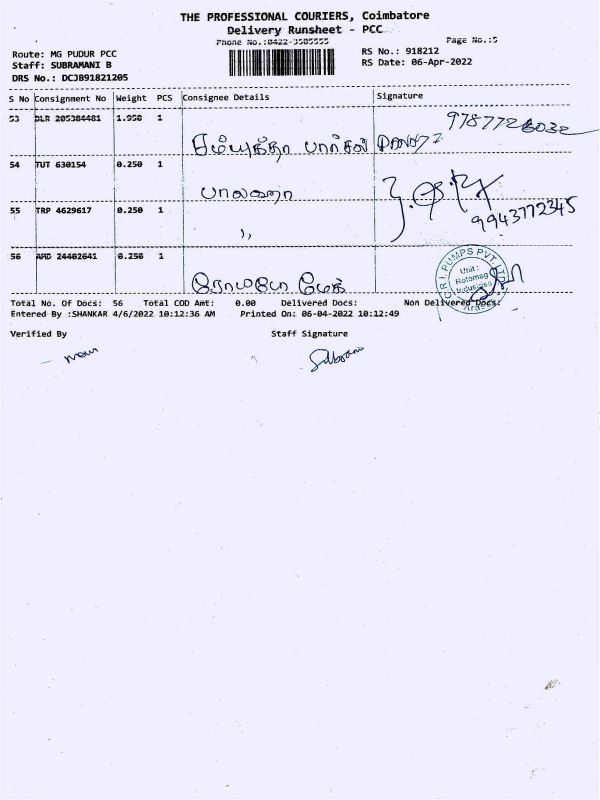 THE PROFESSIONAL COURIERS, Coimbatore
Delivery Runsheet - PCC
Phone No.:0422-3505555
Page No.:5
Route: MG PUDUR PCC
RS No.: 918212
Staff: SUBRAMANI B
RS Date: 06-Apr-2022
DRS No.: DCJB91821205
S No Consignment No Weight PCS Consignee Details Signature
53 BLR 205384481 1.950 1
9787726032
சம்யுக்தா பார்சல்
54 TUT 630154 0.250 1
பாலாஜா
55 TRP 4629617 0.250 1
,,
9943772345
56 AMD 24402641 0.250 1
ரோமபோ மேக்
C.R.I. PUMPS PVT. LTD.
Unit:
Rotomag
Industries
Total No. Of Docs: 56 Total COD Amt: 0.00 Delivered Docs: Non Delivered Docs:
Entered By :SHANKAR 4/6/2022 10:12:36 AM Printed On: 06-04-2022 10:12:49
Verified By Staff Signature